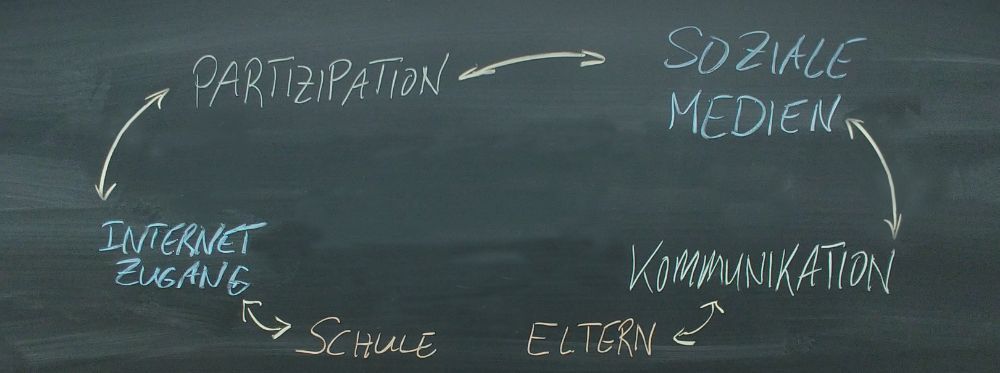 PARTIZIPATION
SOZIALE
MEDIEN
INTERNET
ZUGANG
KOMMUNIKATION
SCHULE
ELTERN